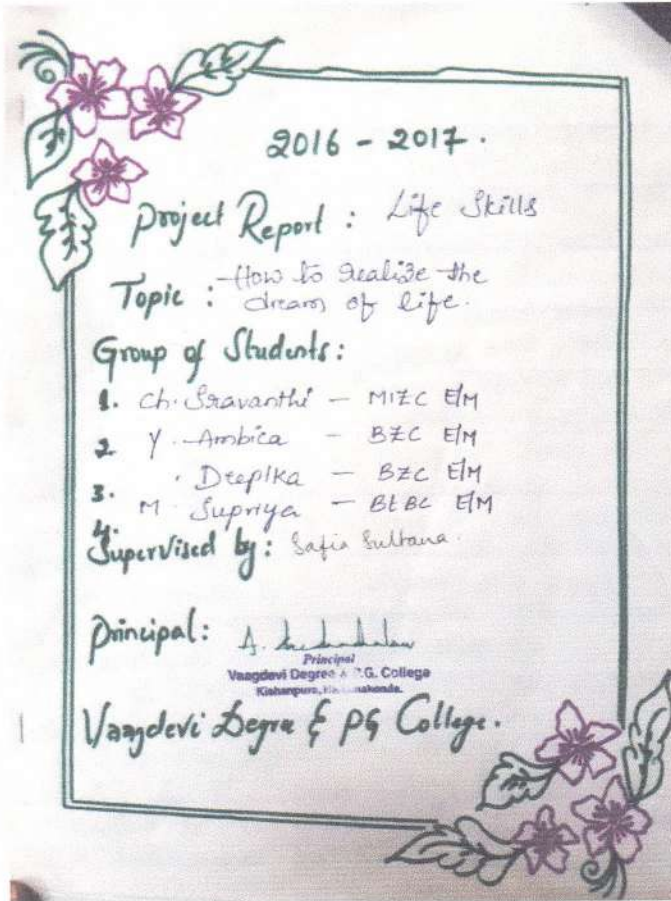 2016 - 2017.
Project Report : Life Skills
Topic : How to realize the
dream of life.
Group of Students:
1. Ch. Sravanthi - MIZC E/M
2. Y. Ambica - BZC E/M
3. Deepika - BZC E/M
4. M Supriya - BtBC E/M
Supervised by: Safia Sultana.
Principal: A.
Principal
Vaagdevi Degree & P.G. College
Kishanpura,
Vaagdevi Degre & PG College.